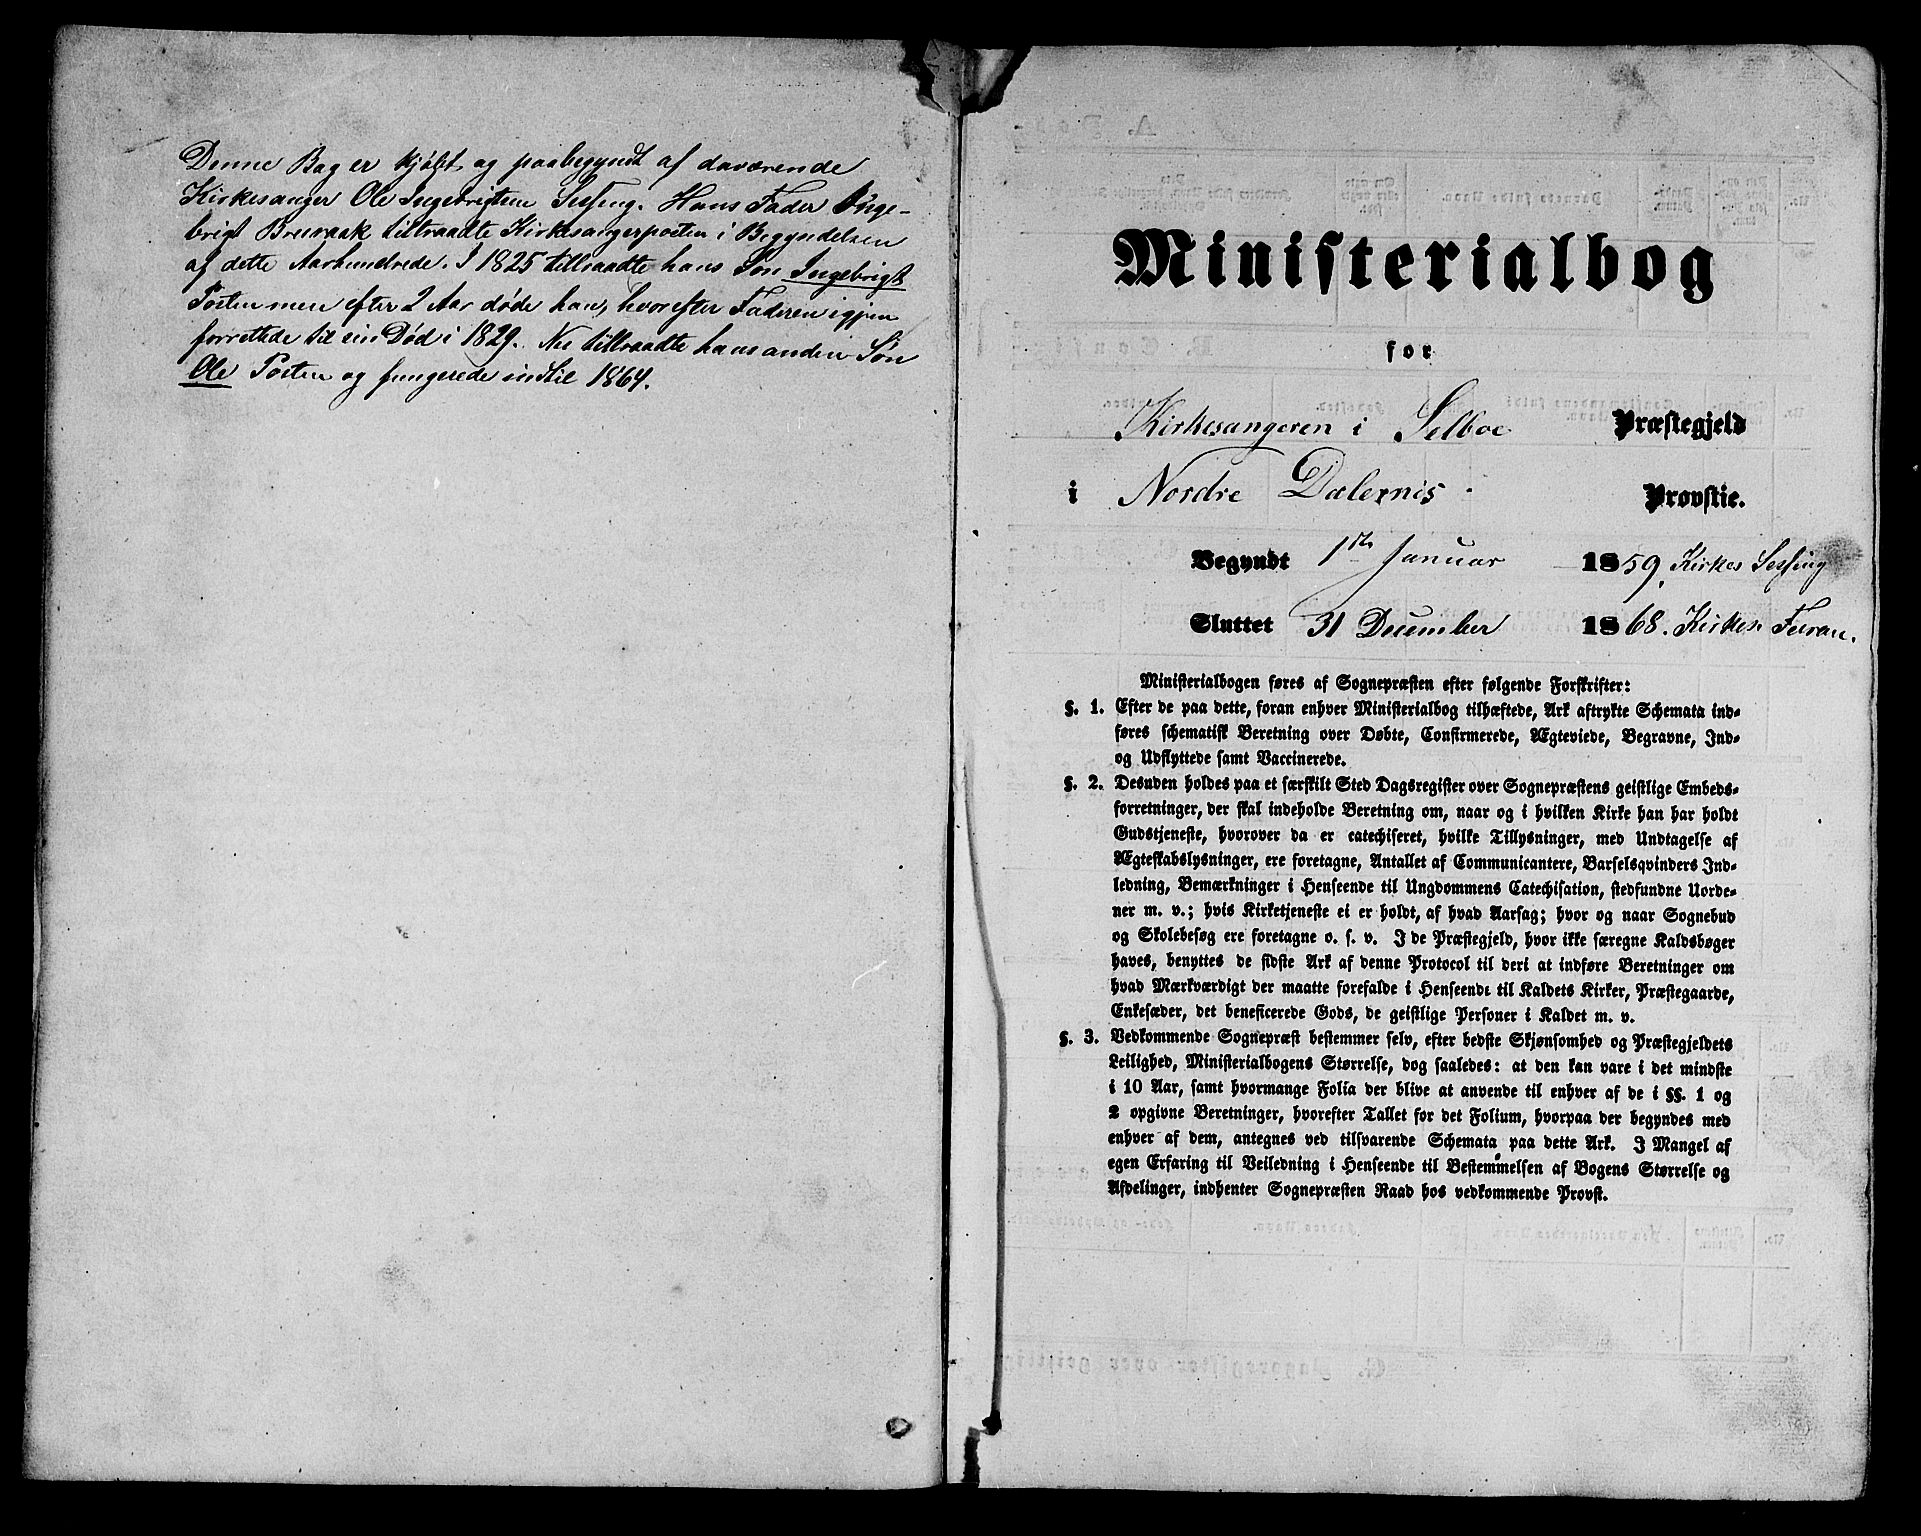 Denne Bog er kjøbt og paabegyndt af daværende
Kirkesanger Ole Ingebrigtsen Sesseng. Hans Fader Inge-
brigt Bruraak tiltraadte Kirkesangerposten i Begyndelsen
af dette Aarhundrede. I 1825 tiltraadte hans Søn Ingebrigt
Posten men efter 2 Aar døde han, hvorefter Faderen igjen
forrettede til sin Død i 1829. Nu tiltraadte hans anden Søn
Ole Posten og fungerede indtil 1864.
Ministerialbog
for
Kirkesangeren i Selboe Præstegjeld
i Nordre Dalernes Provstie.
Begyndt 1ste Januar 1859, Kirkes Sesseng
Sluttet 31 December 1868. Kirkes.
Ministerialbogen føres af Sognepræsten efter følgende Forskrifter:
§. 1. Efter de paa dette, foran enhver Ministerialbog tilhæftede, Ark aftrykte Schemata ind-
føres schematisk Beretning over Døbte, Confirmerede, Ægteviede, Begravne, Ind-
og Udflyttede samt Vaccinerede.
§. 2. Desuden holdes paa et særskilt Sted Dagsregister over Sognepræstens geistlige Embeds-
forretninger, der skal indeholde Beretning om, naar og i hvilken Kirke han har holdt
Gudstjeneste, hvorover da er catechiseret, hvilke Tillysninger, med Undtagelse af
Ægteskabslysninger, ere foretagne, Antallet af Communicantere, Barselsqvinders Ind-
ledning, Bemærkninger i Henseende til Ungdommens Catechisation, stedfundne Uorde-
ner m. v.; hvis Kirketjeneste ei er holdt, af hvad Aarsag; hvor og naar Sognebud
og Skolebesøg ere foretagne o. s. v. I de Præstegjeld, hvor ikke særegne Kaldsbøger
haves, benyttes de sidste Ark af denne Protocol til deri at indføre Beretninger om
hvad Mærkværdigt der maatte forefalde i Henseende til Kaldets Kirker, Præstegaarde,
Enkesæder, det beneficerede Gods, de geistlige Personer i Kaldet m. v.
§. 3. Vedkommende Sognepræst bestemmer selv, efter bedste Skjønsomhed og Præstegjeldets
Leilighed, Ministerialbogens Størrelse, dog saaledes: at den kan vare i det mindste
i 10 Aar, samt hvormange Folia der blive at anvende til enhver af de i §§. 1 og
2 opgivne Beretninger, hvorefter Tallet for det Folium, hvorpaa der begyndes med
enhver af dem, antegnes ved tilsvarende Schemata paa dette Ark. I Mangel af
egen Erfaring til Veiledning i Henseende til Bestemmelsen af Bogens Størrelse og
Afdelinger, indhenter Sognepræsten Raad hos vedkommende Provst.